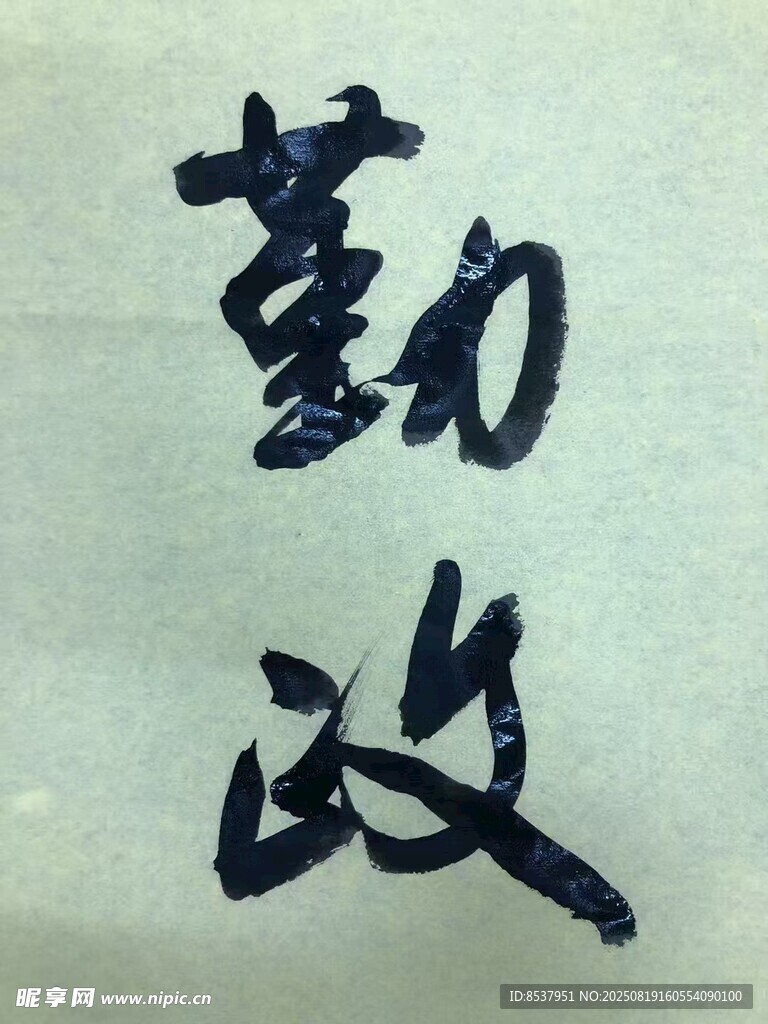 勤
政
昵享网 www.nipic.cn
ID:8537951 NO:20250819160554090100